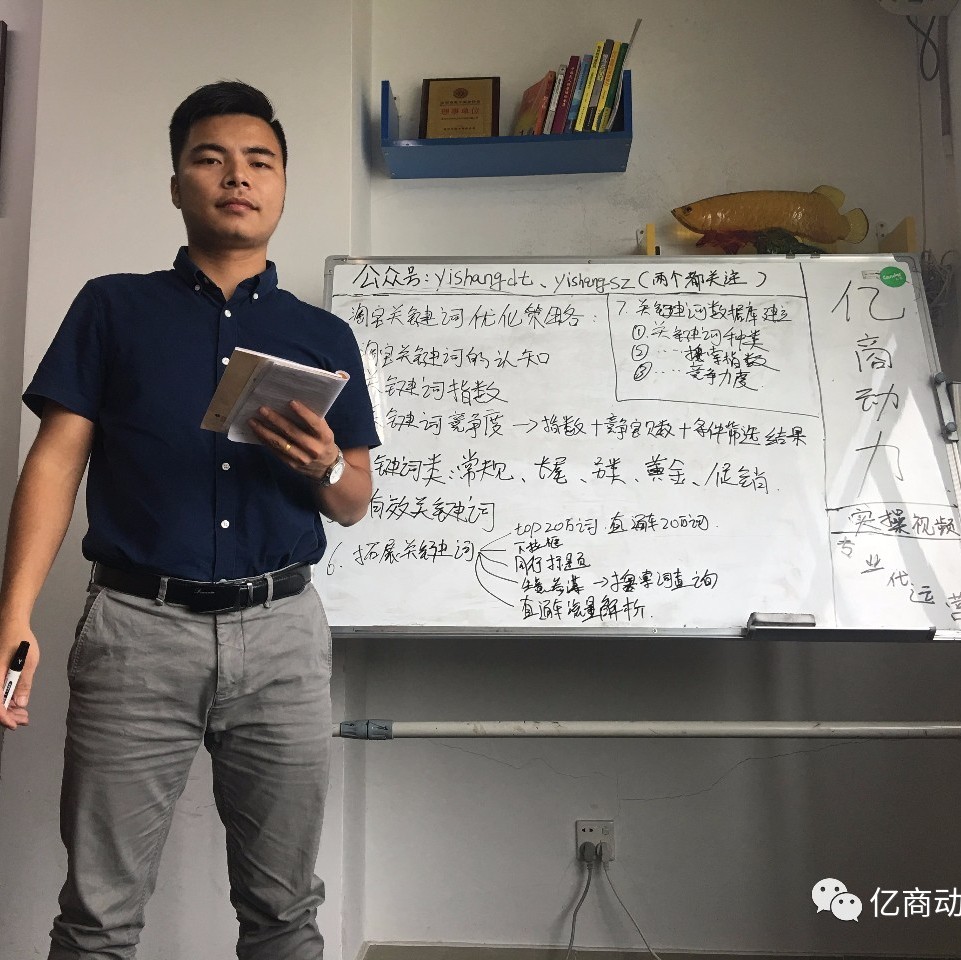 理事单位
公众号：yishang.dt、yishang.sz（两个都关注）
淘宝关键词优化策略：
淘宝关键词的认知
键词指数
键词竞争度→指数＋竞争宝贝数＋条件筛选结果
键词类：常规、长尾、类、黄金、促销
有效关键词
6. 拓展关键词
top20万词 直通车20万词
下拉框
同行标题
→搜索词查询
直通车流量解析
7. 关键词数据库建立
① 关键词种类
② ‥‥搜索指数
③ ‥‥竞争力度
亿商动力
实操视频
专业代运营
亿商动